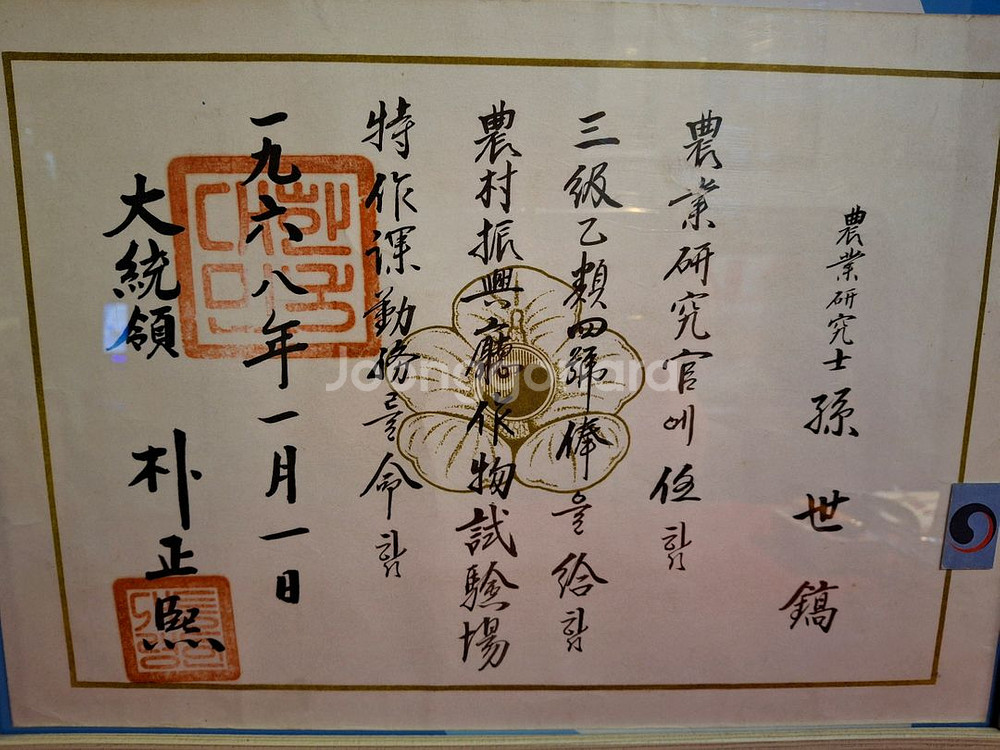 農業硏究士 孫世鎬
農業硏究官에 任함
三級乙類四號俸을 給함
農村振興廳作物試驗場
特作課勤務를 命함
一九六八年一月一日
大統領 朴正熙